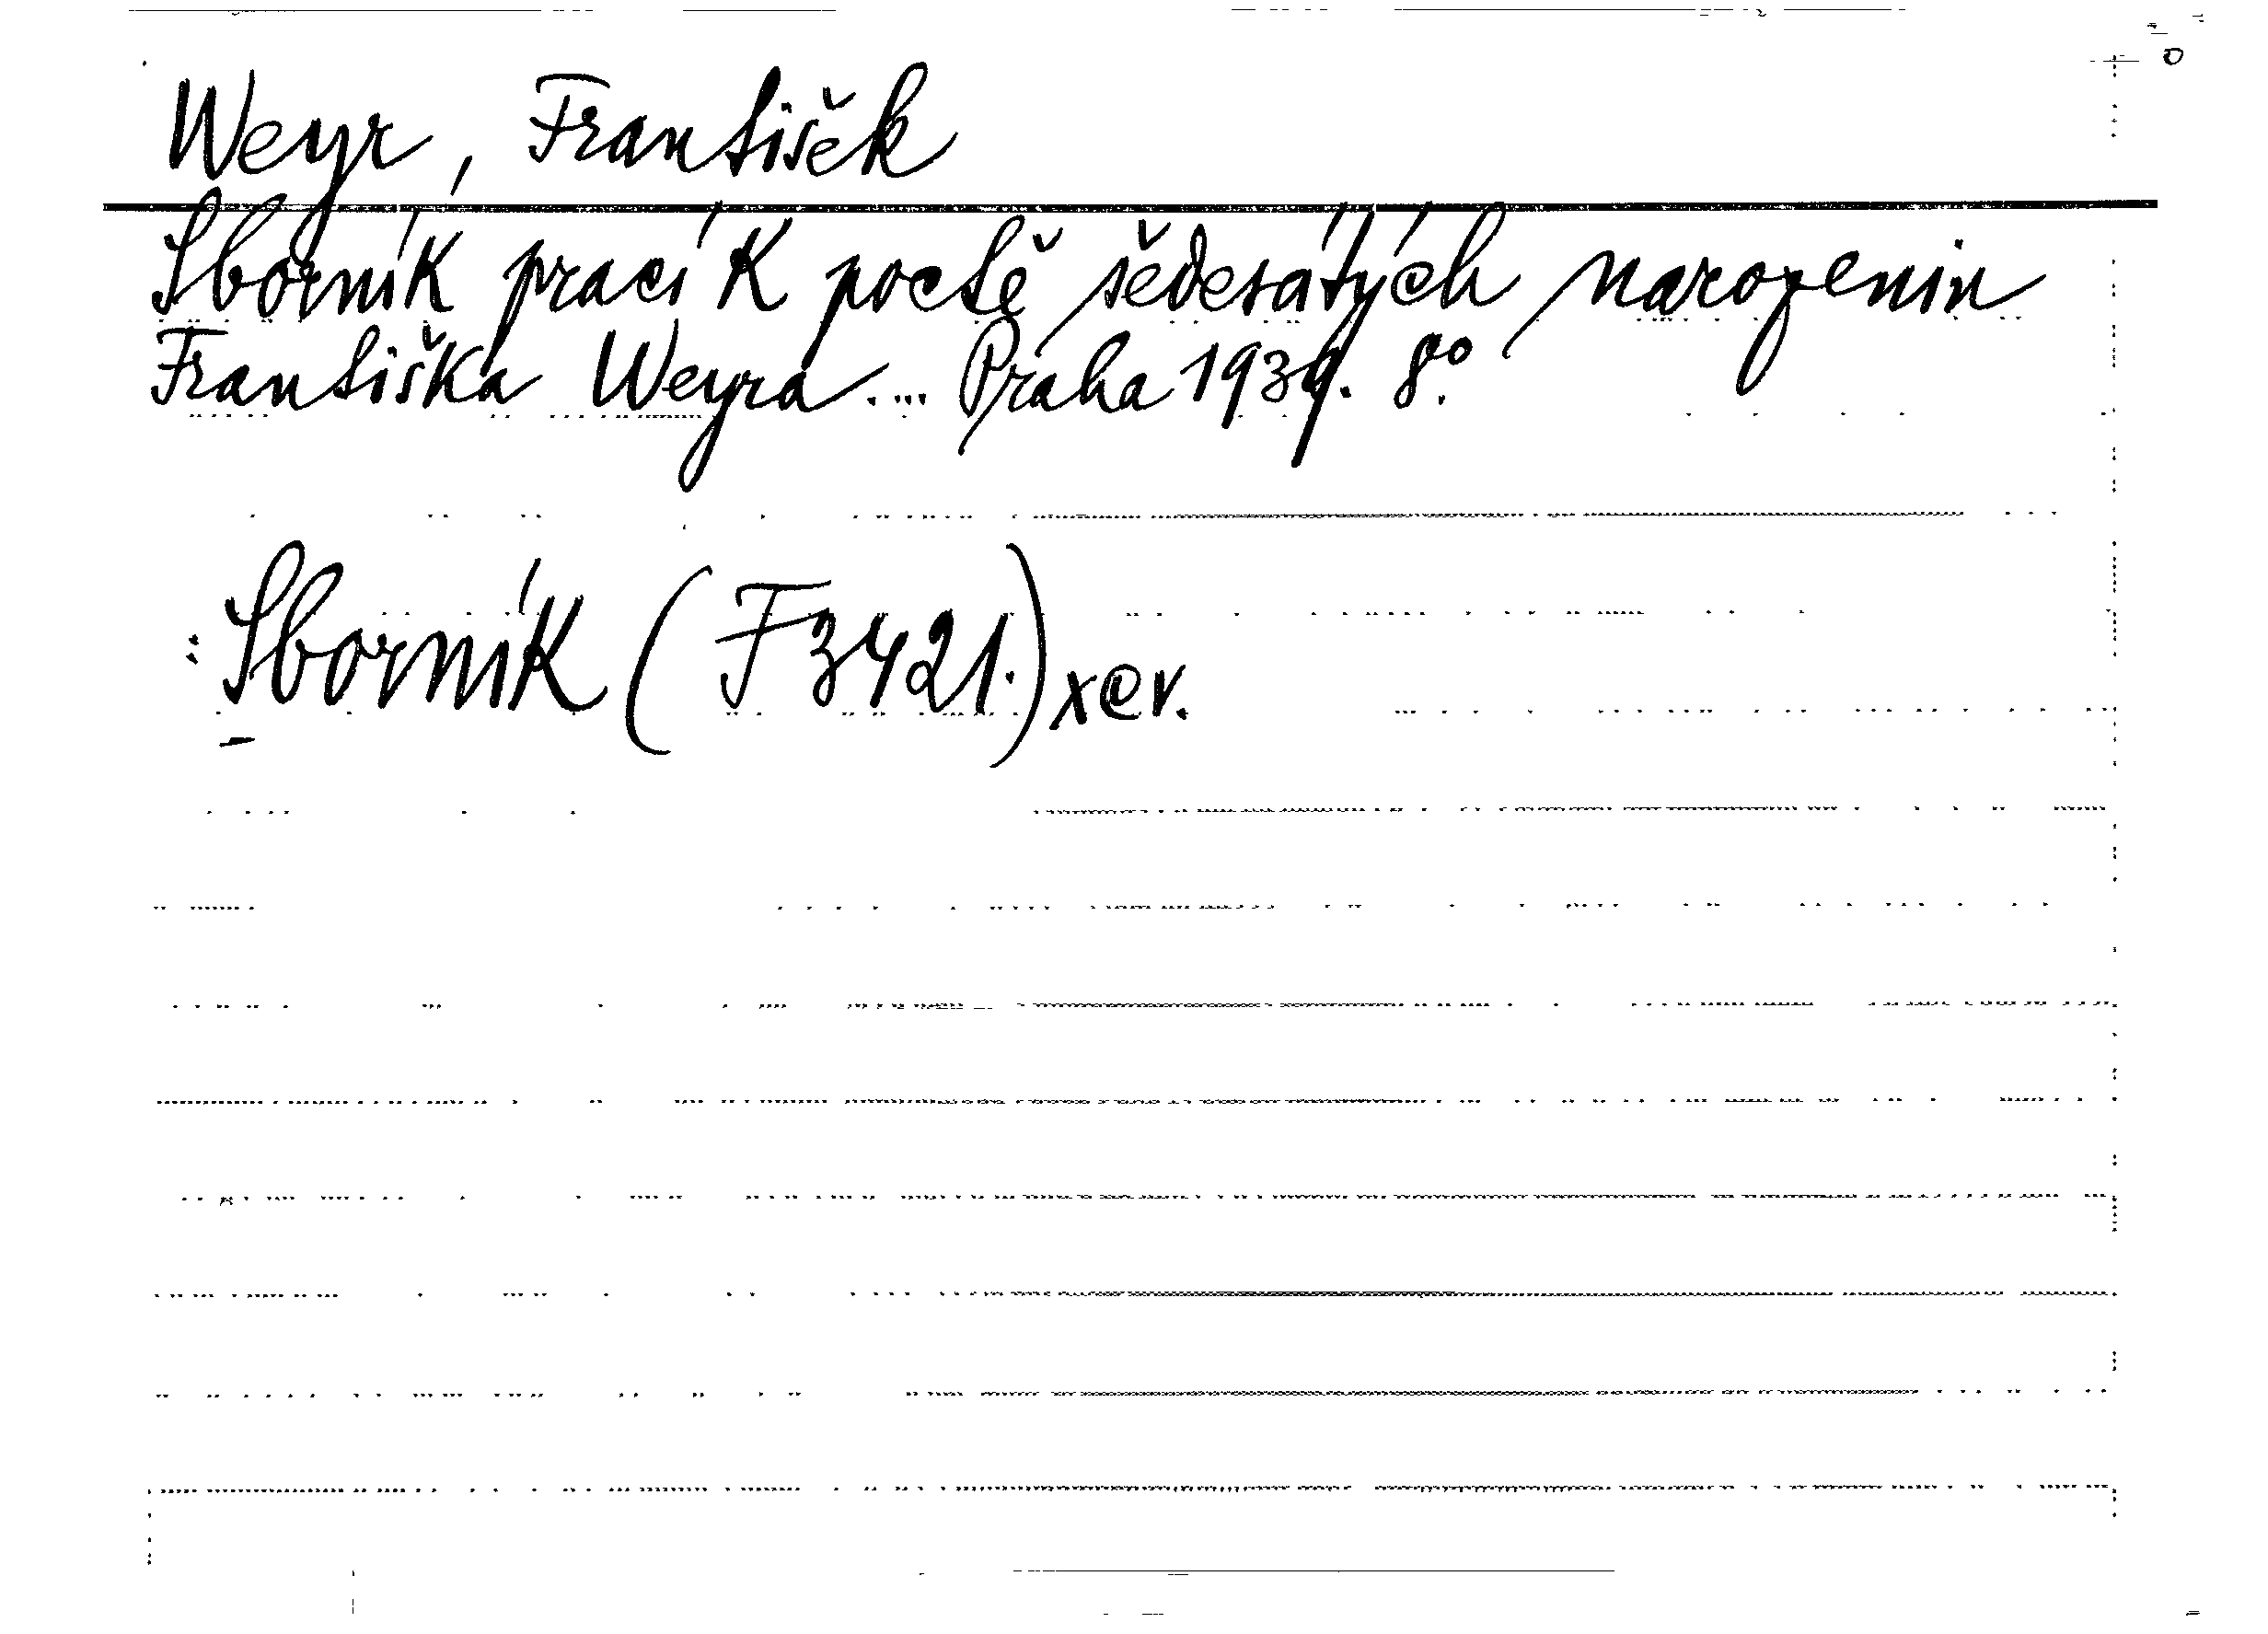 Weyr, František
Sborník prací k poctě šedesátých narozenin
Františka Weyra.... Praha 1939. 8°.
: Sborník (F 3421.) xev.